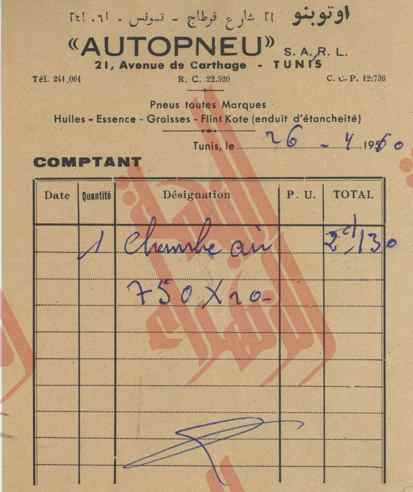 اوتوبنو ٢١ شارع قرطاج - تونس - ٢٤١.٠٦١
«AUTOPNEU» S. A. R. L.
21, Avenue de Carthage - TUNIS
Tél. 241,061 R. C. 22.520 C. C. P. 12.736
Pneus toutes Marques
Huiles - Essence - Graisses - Flint Kote (enduit d'étancheité)
Tunis, le 26 - 4 1960
COMPTANT
Date Quantité Désignation P. U. TOTAL
1 Chambre air 2d,130
750 x 20